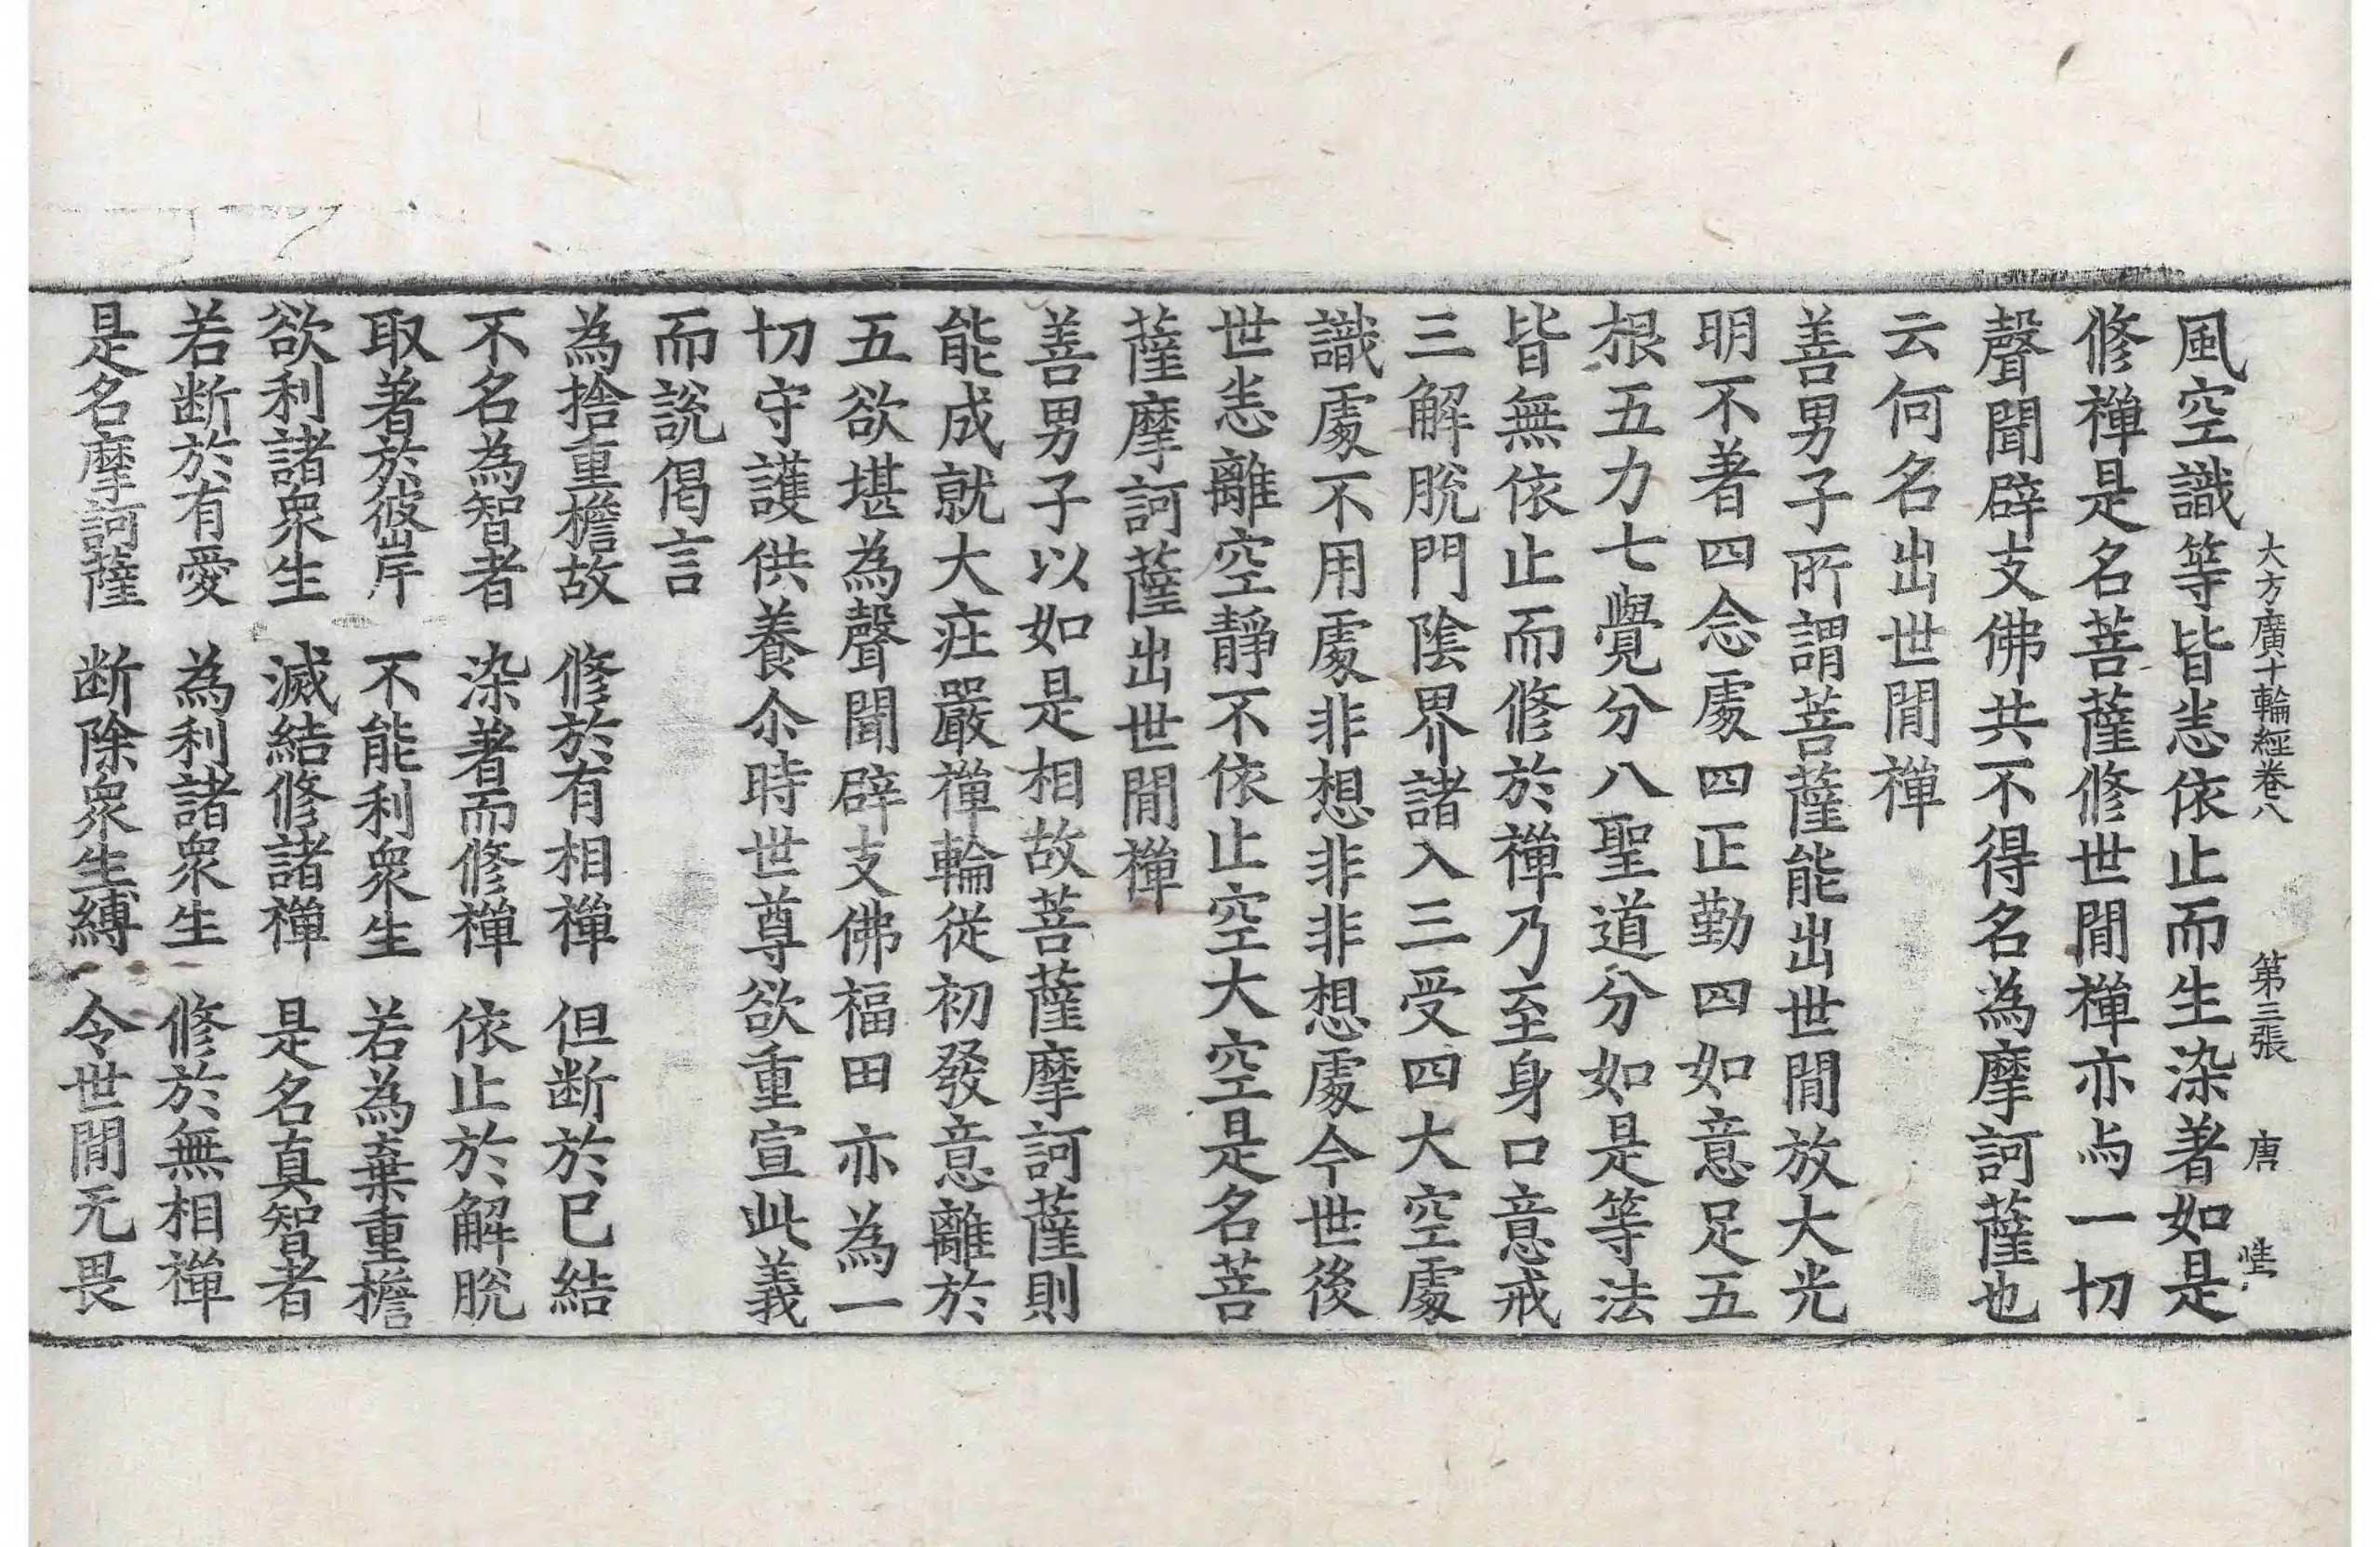 大方廣十輪經卷八 第三張 唐
風空識等皆恙依止而生染著如是
修禪是名菩薩修世閒禪亦与一切
聲聞辟支佛共不得名為摩訶薩也
云何名出世閒禪
善男子所謂菩薩能出世閒放大光
明不著四念處四正勤四如意足五
根五力七覺分八聖道分如是等法
皆無依止而修於禪乃至身口意戒
三解脫門陰界諸入三受四大空處
識處不用處非想非非想處今世後
世恙離空靜不依止空大空是名菩
薩摩訶薩出世閒禪
善男子以如是相故菩薩摩訶薩則
能成就大疰嚴禪輪從初發意離於
五欲堪為聲聞辟支佛福田亦為一
切守護供養尒時世尊欲重宣此義
而說偈言
為捨重檐故 修於有相禪 但断於已結
不名為智者 染著而修禪 依止於解脫
取著於彼岸 不能利衆生 若為棄重檐
欲利諸衆生 滅結修諸禪 是名真智者
若断於有愛 為利諸衆生 修於無相禪
是名摩訶薩 断除衆生縛 令世閒无畏